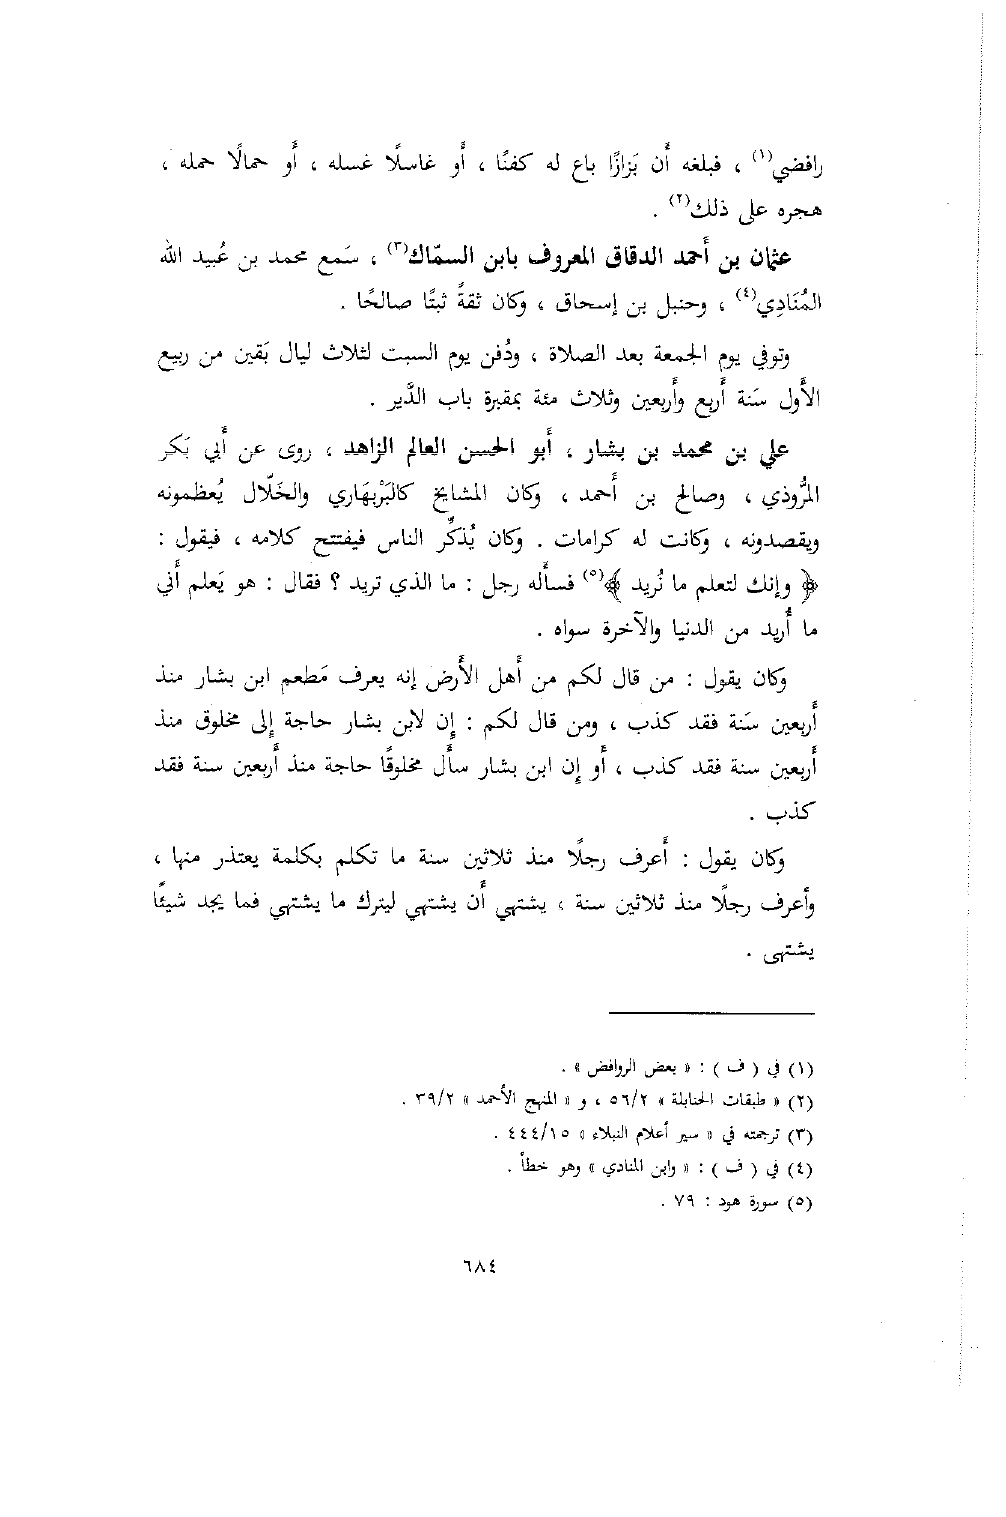 رافضي(١) ، فبلغه أَن بَزازًا باع له كفنًا ، أَو غاسلًا غسله ، أَو حمالًا حمله ،
هجره على ذلك(٢) .
عثمان بن أَحمد الدقاق المعروف بابن السمّاك(٣) ، سَمع محمد بن عُبيد الله
المُنَادِي(٤) ، وحنبل بن إسحاق ، وكان ثقةً ثبتًا صالحًا .
وتوفي يوم الجمعة بعد الصلاة ، ودُفن يوم السبت لثلاث ليال بَقين من ربيع
الأَول سَنة أَربع وأَربعين وثلاث مئة بمقبرة باب الدَّير .
علي بن محمد بن بشار ، أَبو الحسن العالم الزاهد ، روى عن أَبي بَكر
المرُّوذي ، وصالح بن أَحمد ، وكان المشايخ كالبَرْبهَاري والخَلّال يُعظمونه
ويقصدونه ، وكانت له كرامات . وكان يُذكِّر الناس فيفتتح كلامه ، فيقول :
﴿ وإنك لتعلم ما نُريد ﴾(٥) فسأَله رجل : ما الذي تريد ؟ فقال : هو يَعلم أَني
ما أُريد من الدنيا والآخرة سواه .
وكان يقول : من قال لكم من أَهل الأَرض إنه يعرف مَطعم ابن بشار منذ
أَربعين سَنة فقد كذب ، ومن قال لكم : إِن لابن بشار حاجة إِلى مخلوق منذ
أَربعين سنة فقد كذب ، أَو إِن ابن بشار سأَل مخلوقًا حاجة منذ أَربعين سنة فقد
كذب .
وكان يقول : أَعرف رجلًا منذ ثلاثين سنة ما تكلم بكلمة يعتذر منها ،
وأَعرف رجلًا منذ ثلاثين سنة ، يشتهي أَن يشتهي ليترك ما يشتهي فما يجد شيئًا
يشتهى .
(١) في ( ف ) : « بعض الروافض » .
(٢) « طبقات الحنابلة » ٥٦/٢ ، و « المنهج الأَحمد » ٣٩/٢ .
(٣) ترجمته في « سير أعلام النبلاء » ٤٤٤/١٥ .
(٤) في ( ف ) : « وابن المنادي » وهو خطأ .
(٥) سورة هود : ٧٩ .
٦٨٤